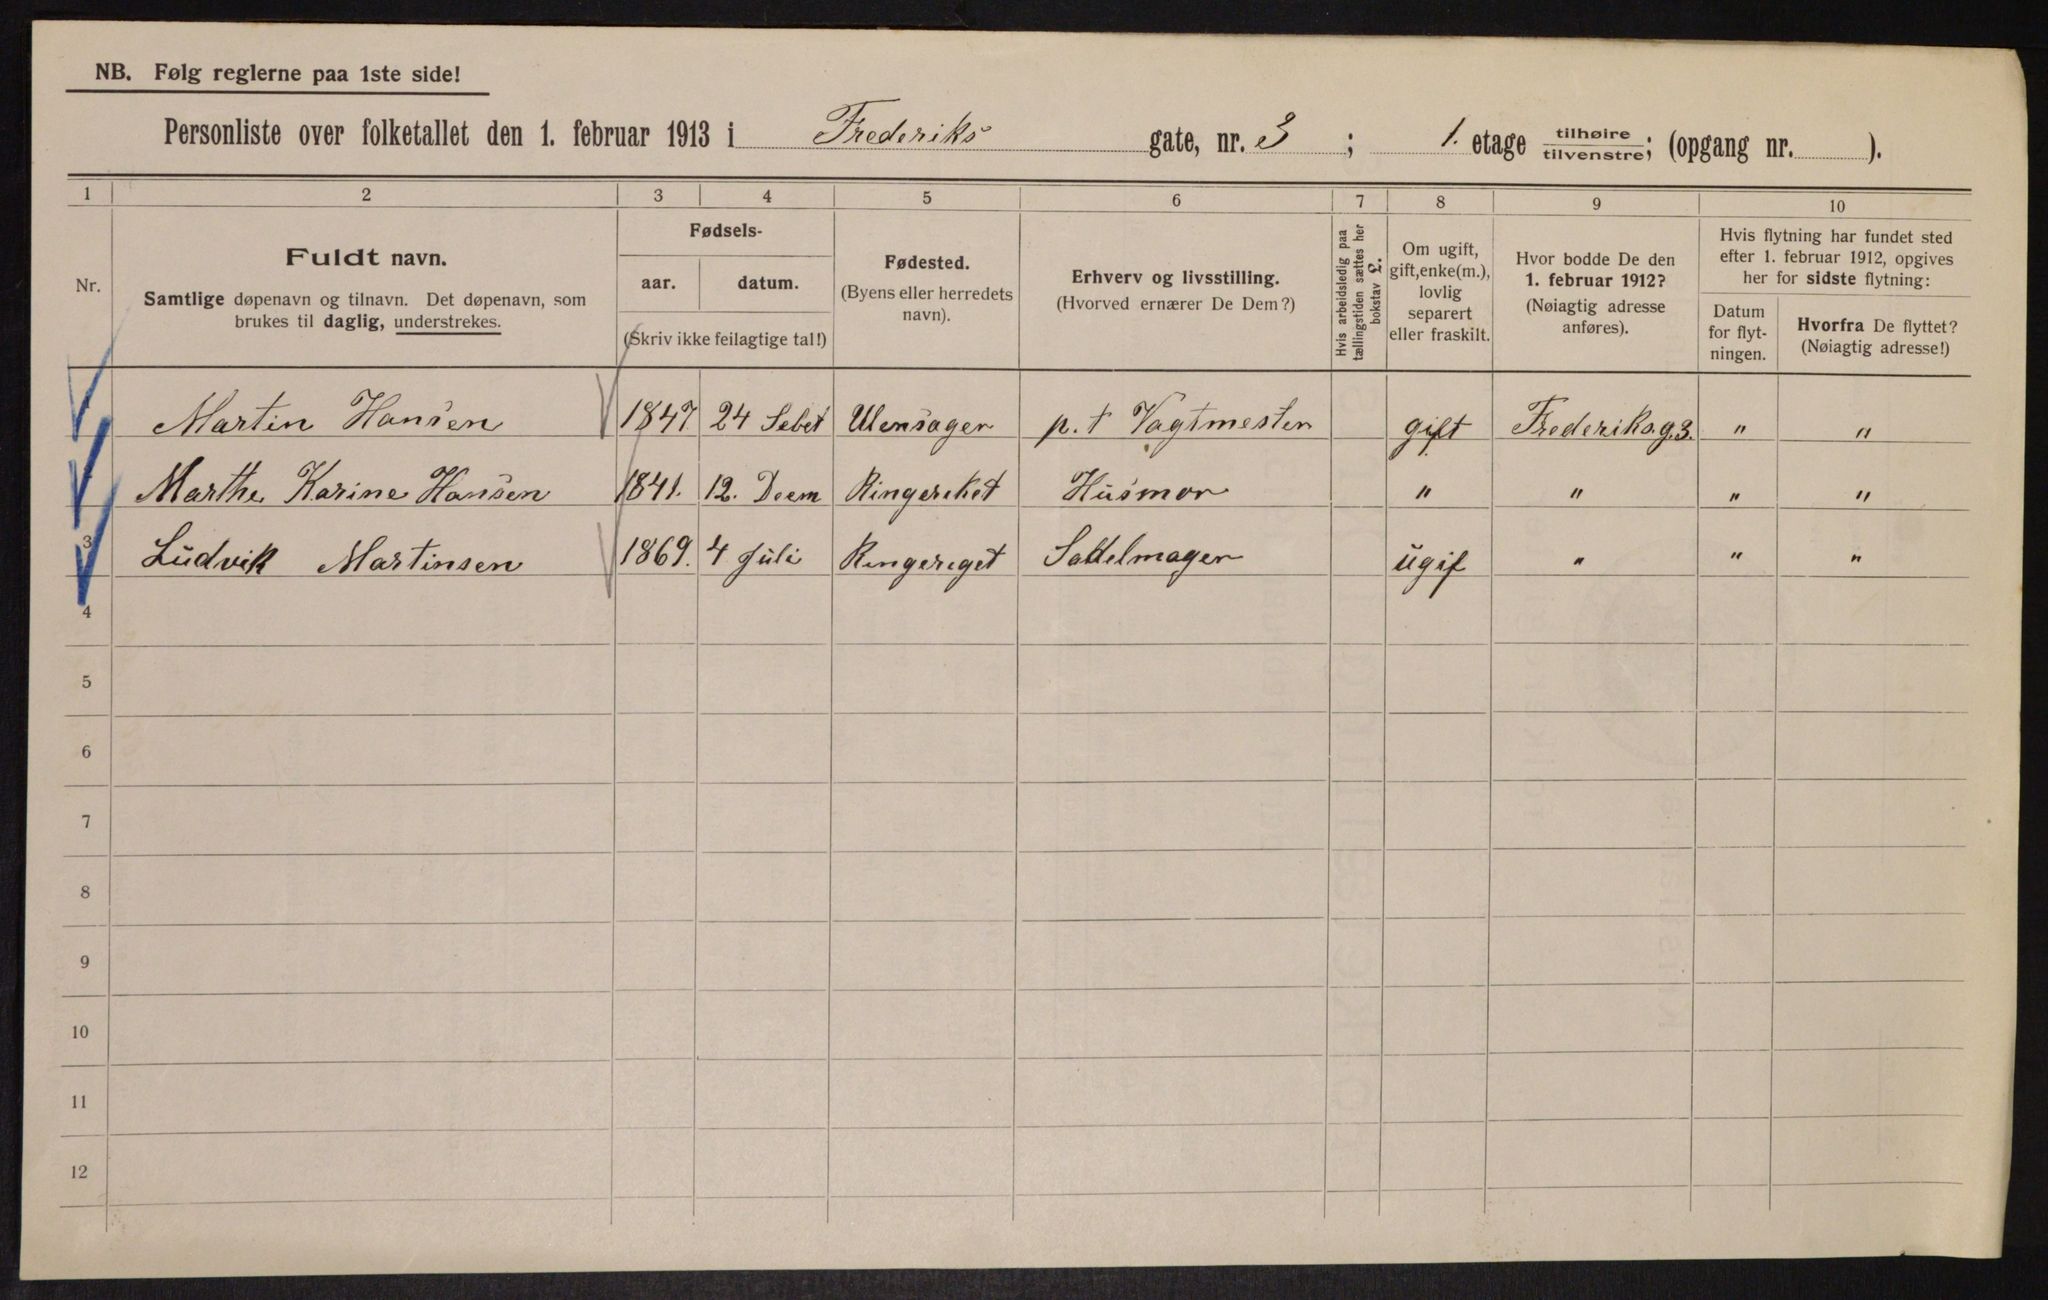 NB. Følg reglerne paa 1ste side!
Personliste over folketallet den 1. februar 1913 i Frederiks gate, nr. 3 ; 1. etage tilhøire/tilvenstre; (opgang nr. ).
1 2 3 4 5 6 7 8 9 10
Nr.
Fuldt navn.
Samtlige døpenavn og tilnavn. Det døpenavn, som
brukes til daglig, understrekes.
Fødsels-
aar. datum.
(Skriv ikke feilagtige tal!)
Fødested.
(Byens eller herredets
navn).
Erhverv og livsstilling.
(Hvorved ernærer De Dem?)
Hvis arbeidsledig paa
tællingstiden sættes her
bokstav L.
Om ugift,
gift, enke(m.),
lovlig
separert
eller fraskilt.
Hvor bodde De den
1. februar 1912?
(Nøiagtig adresse
anføres).
Hvis flytning har fundet sted
efter 1. februar 1912, opgives
her for sidste flytning:
Datum
for flyt-
ningen.
Hvorfra De flyttet?
(Nøiagtig adresse!)
Martin Hansen 1847. 24 Sebet Ulensager p. t Vagtmester gift Frederiks.g.3. " "
Marthe Karine Hansen 1841. 12. Deem Ringereket Husmor " " " "
3 Ludvik Martinsen 1869. 4 Juli Ringereget Sadelmager ugif " " "
4
5
6
7
8
9
10
11
12